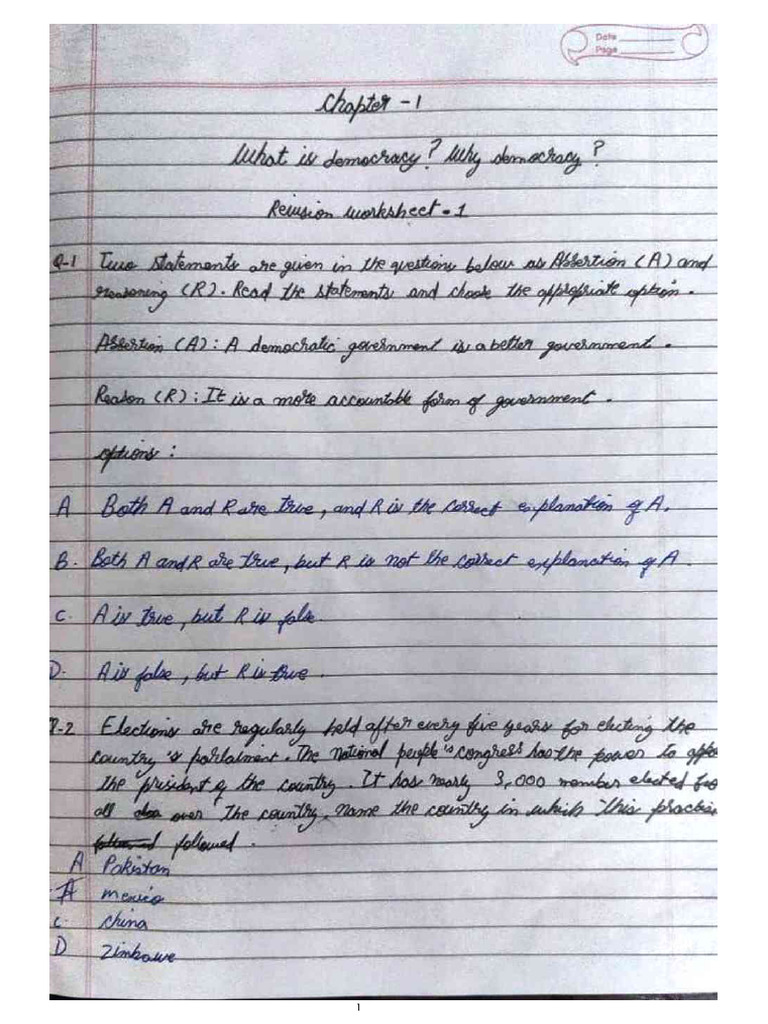 Date
Page
Chapter - 1
What is democracy? Why democracy?
Revision worksheet - 1
Q-1 Two statements are given in the questions below as Assertion (A) and
reasoning (R). Read the statements and choose the appropriate option.
Assertion (A): A democratic government is a better government.
Reason (R): It is a more accountable form of government.
options:
A Both A and R are true, and R is the correct explanation of A.
B. Both A and R are true, but R is not the correct explanation of A.
C. A is true, but R is false.
D. A is false, but R is true.
Q-2 Elections are regularly held after every five years for electing the
country's parlaiment. The National people's congress has the power to appo
the president of the country. It has nearly 3,000 member elected fro
all over the country, name the country in which this practise
followed.
A Pakistan
A mexico
C. china
D Zimbawe
1